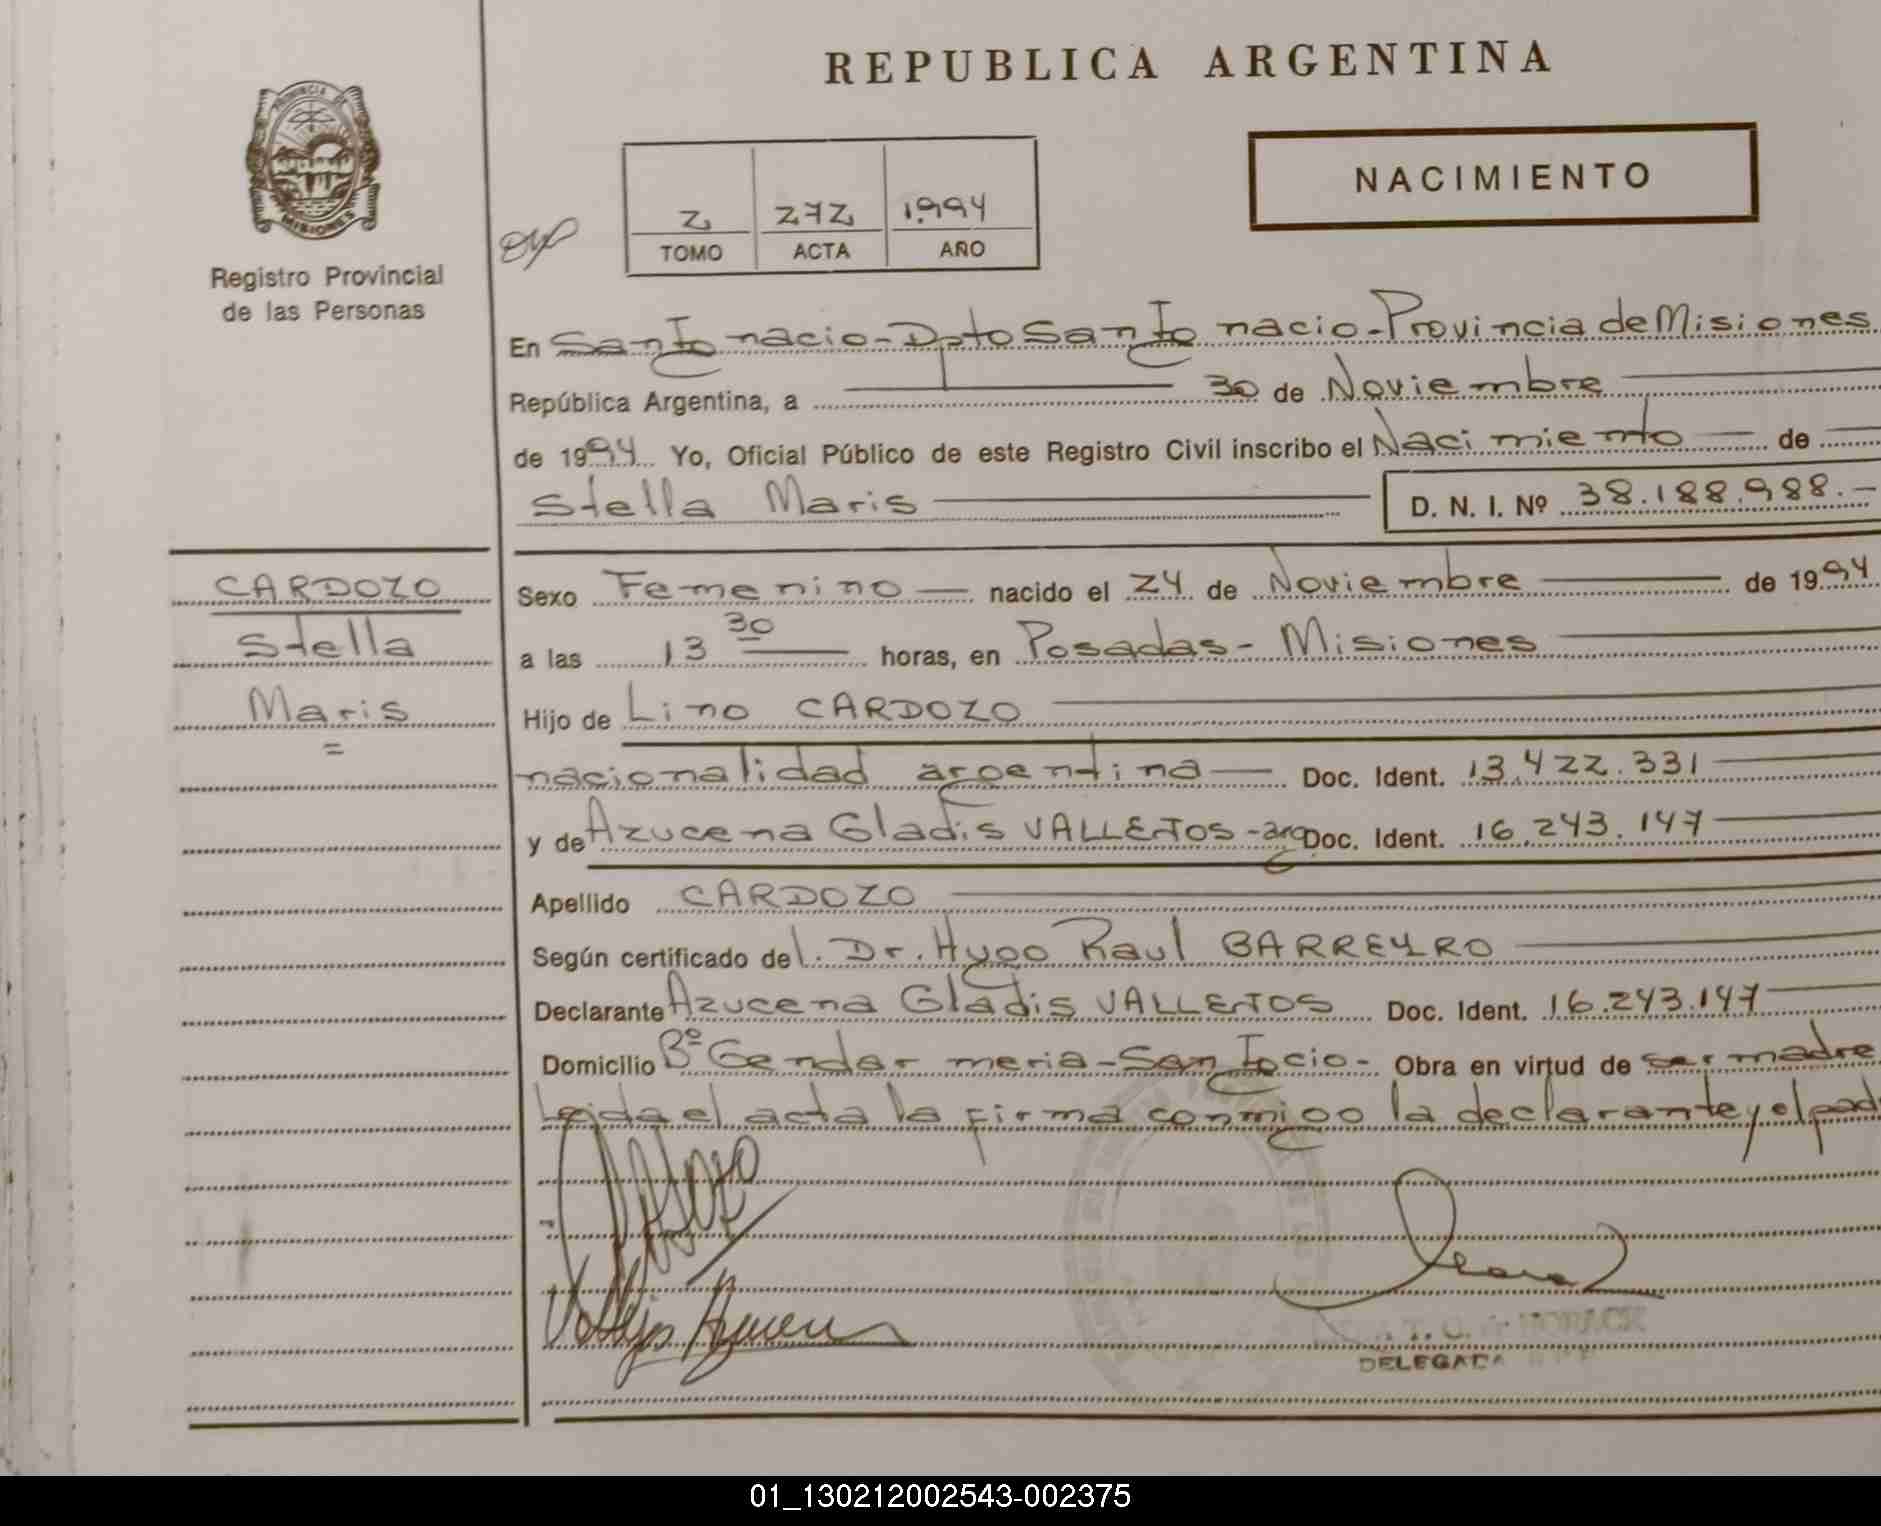 REPUBLICA ARGENTINA
PROVINCIA DE
MISIONES
Registro Provincial
de las Personas
NACIMIENTO
2 272 1.994
TOMO ACTA AÑO
En San Ignacio - Dpto San Ignacio - Provincia de Misiones
República Argentina, a 30 de Noviembre
de 1994 Yo, Oficial Público de este Registro Civil inscribo el Nacimiento de
Stella Maris D. N. I. Nº 38.188.988.-
CARDOZO
Stella
Maris
=
Sexo Femenino nacido el 24 de Noviembre de 1994
a las 13 30 horas, en Posadas - Misiones
Hijo de Lino CARDOZO
nacionalidad argentina Doc. Ident. 13.422.331
y de Azucena Gladis VALLEJOS - arg Doc. Ident. 16.243.147
Apellido CARDOZO
Según certificado del. Dr. Hugo Raul BARREYRO
Declarante Azucena Gladis VALLEJOS Doc. Ident. 16.243.147
Domicilio Bº Gendarmeria - San Igcio - Obra en virtud de ser madre
Leida el acta la firma conmigo la declarante y el pad
DELEGADA
01_130212002543-002375